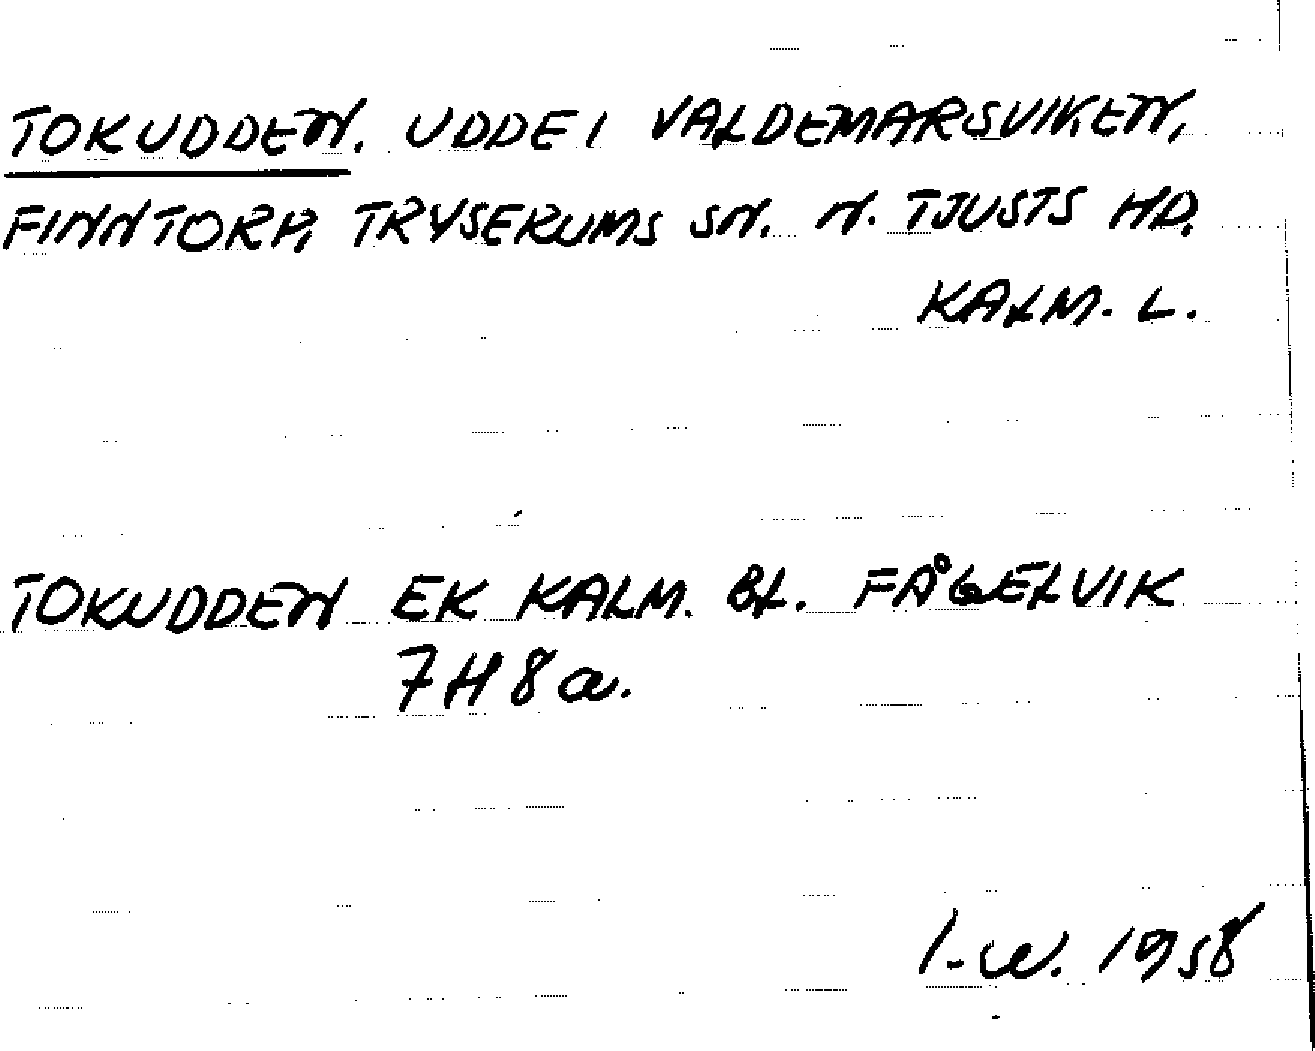 TOKUDDEN. UDDE I VALDEMARSVIKEN,
FINNTORP, TRYSERUMS SN. N. TJUSTS HD.
KALM. L.
TOKUDDEN EK KALM. BL. FÅGELVIK
7H8a.
I-W. 1958